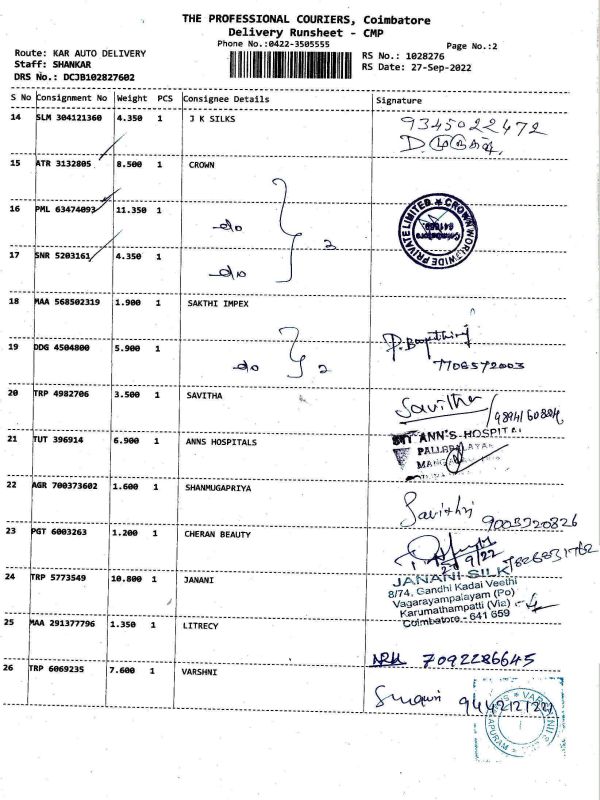 THE PROFESSIONAL COURIERS, Coimbatore
Delivery Runsheet - CMP
Phone No.:0422-3505555
Page No.:2
Route: KAR AUTO DELIVERY
RS No.: 1028276
Staff: SHANKAR
RS Date: 27-Sep-2022
DRS No.: DCJB102827602
S No Consignment No Weight PCS Consignee Details Signature
14 SLM 304121360 4.350 1 J K SILKS 9345022472
D. முருகன்
15 ATR 3132805 8.500 1 CROWN
16 PML 63474093 11.350 1 -do 2
CROWN WORLDWIDE PRIVATE LIMITED Coimbatore
17 SNR 5203161 4.350 1 -do
18 MAA 568502319 1.900 1 SAKTHI IMPEX
19 DDG 4504800 5.900 1 -do 2 7708572003
20 TRP 4982706 3.500 1 SAVITHA Savitha
21 TUT 396914 6.900 1 ANNS HOSPITALS ANN'S HOSPITAL
22 AGR 700373602 1.600 1 SHANMUGAPRIYA Savithri 9003720826
23 PGT 6003263 1.200 1 CHERAN BEAUTY
24 TRP 5773549 10.800 1 JANANI JANANI SILK
8/74, Gandhi Kadai Veethi
Vagarayampalayam (Po)
Karumathampatti (Via)
Coimbatore - 641 659
25 MAA 291377796 1.350 1 LITRECY 7092286645
26 TRP 6069235 7.600 1 VARSHNI